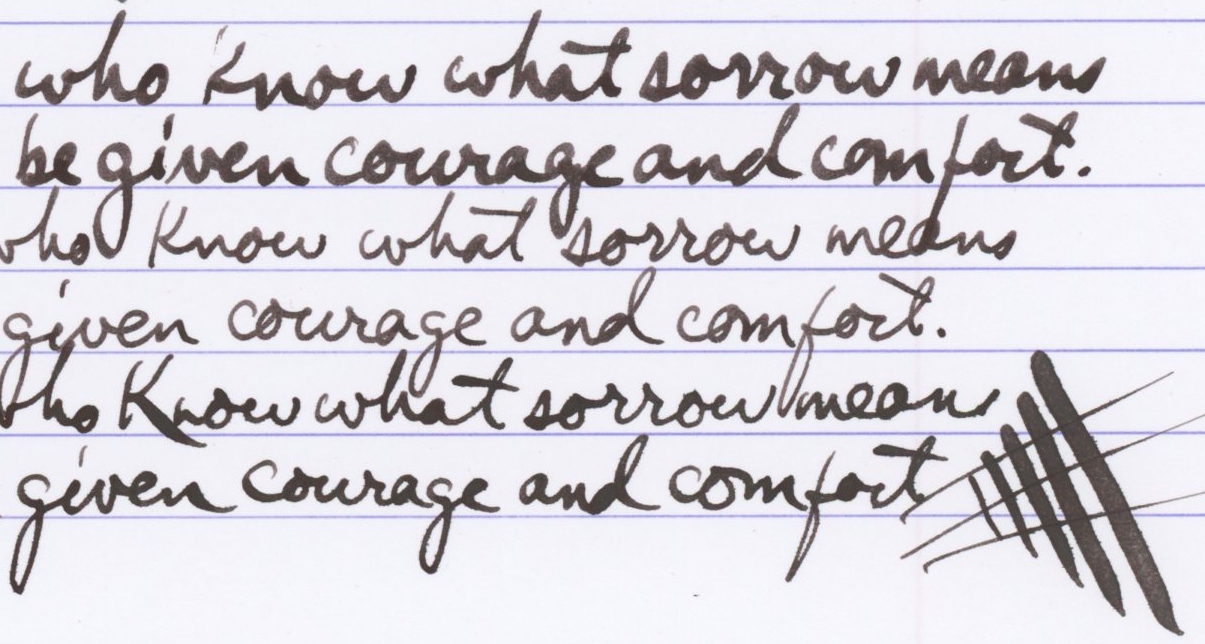 who know what sorrow means
be given courage and comfort.
who know what sorrow means
given courage and comfort.
who know what sorrow means
given courage and comfort